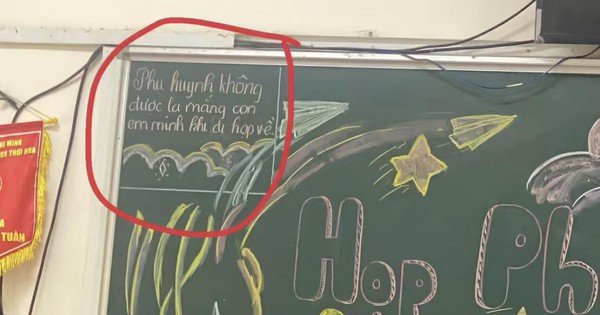 Phụ huynh không
được la mắng con
em mình khi đi họp về
Họp Ph
MINH
TUẦN